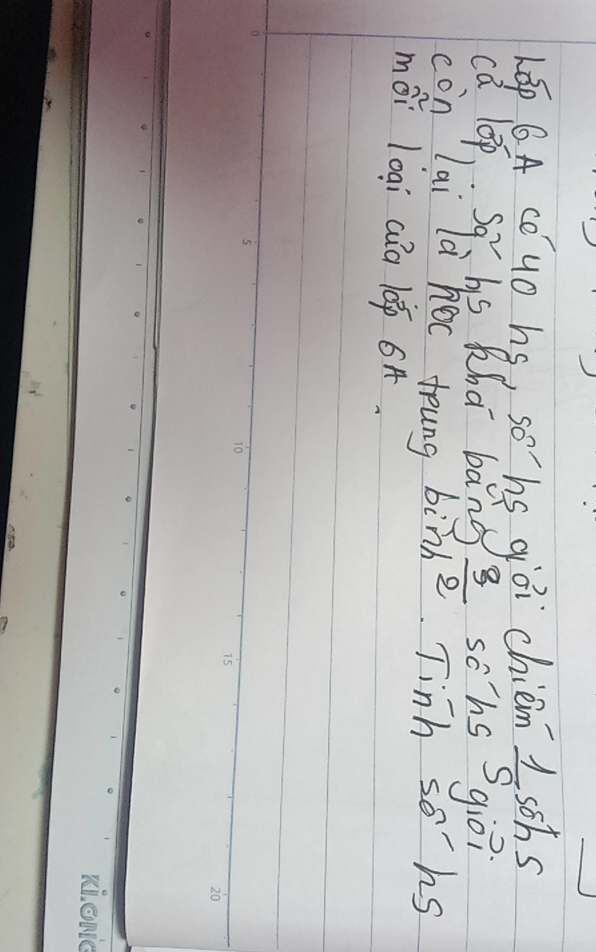 Lớp 6A có 40 hs, số hs giỏi chiếm 1/5 số hs
cả lớp. Số hs khá bằng 3/2 số hs giỏi.
còn lại là học trung bình. Tính số hs
mỗi loại của lớp 6A.
0 5 10 15 20
Ki.ONG